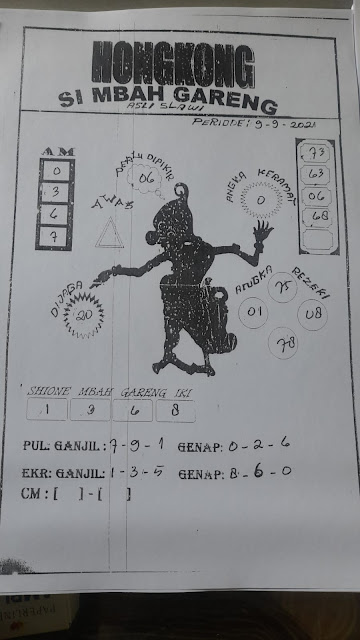 HONGKONG
SI MBAH GARENG
ASLI SLAWI
PERIODE: 9-9-2021
AM
0
3
6
7
PERLU DIPIKIR
06
AWAS
ANGKA KERAMAT
0
73
63
06
68
DIJAGA
20
ANGKA REZEKI
75
01
08
78
SHIONE MBAH GARENG IKI
1 3 6 8
PUL: GANJIL: 7-9-1 GENAP: 0-2-6
EKR: GANJIL: 1-3-5 GENAP: 8-6-0
CM : [ ] - [ ]
PAPERLINE